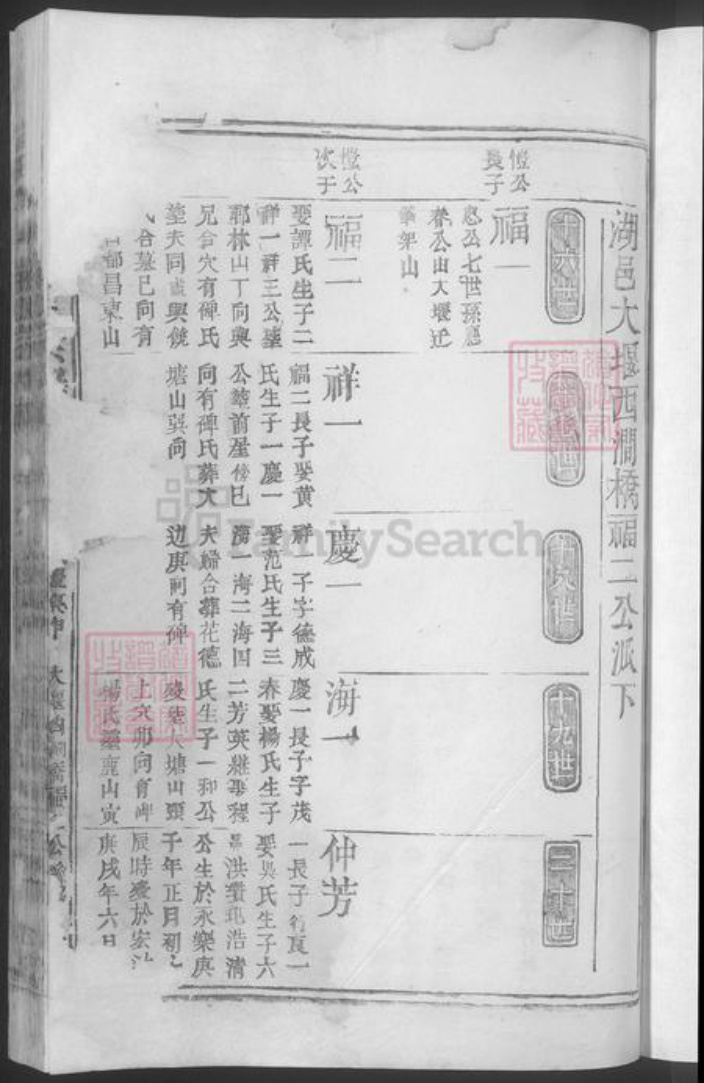 湖邑大堰西澗橋福二公派下
十六世
愷公
長子
福一
愈公七世孫慝
春公山大堰近
筆架山
愷公
次子
福二
娶譚氏生子二
祥一祥三公墓
耶林山丁向與
兄合穴有碑氏
塟夫同與饒
合墓巳向有
都昌東山
祥一
福二長子娶黃
氏生子一慶一
公塟前屋傍巳
向有碑氏葬大
塘山巽向
十八世
慶一
祥一子字德成
娶范氏生子三
海一海二海四
夫婦合葬花德
边庚向有碑
十九世
海一
慶一長子字茂
春娶楊氏生子
二芳英継娶程
氏生子一和公
歿塟塘山頭
上穴卯向有碑
楊氏塟鹿山寅
二十世
仲芳
一長子行貢一
娶吳氏生子六
洪瓚浩清
公生於永樂庚
子年正月初
辰時歿於宏
庚戌年六日
大堰西澗橋福二公
FamilySearch